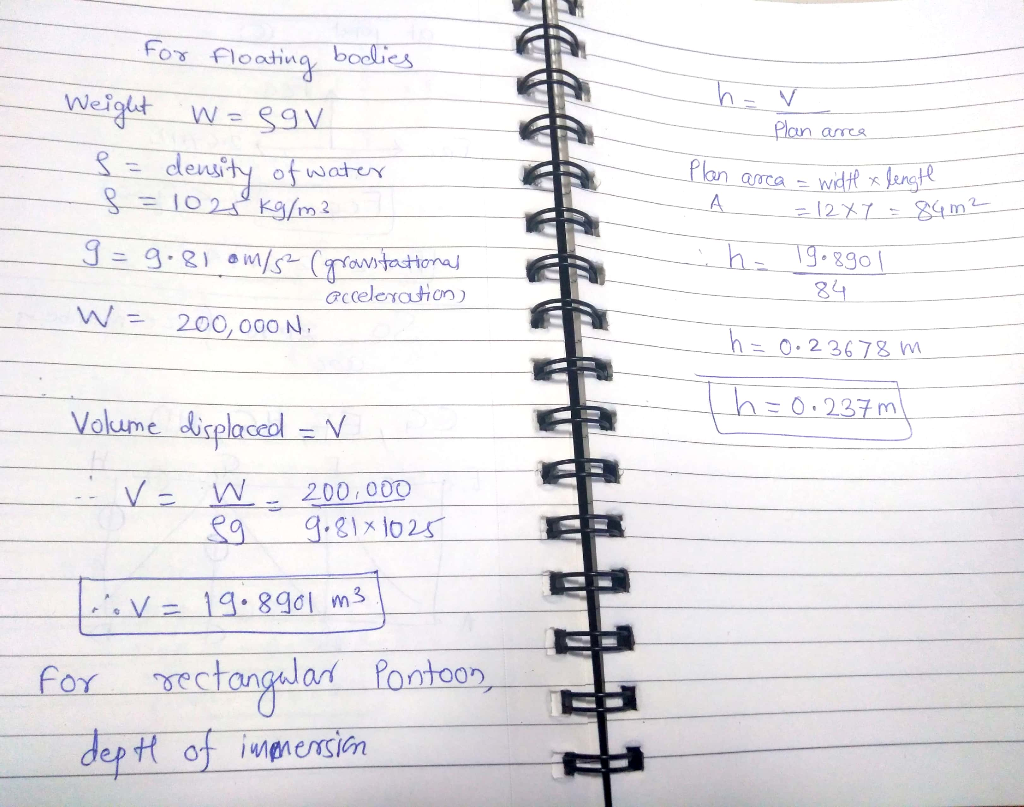 For floating bodies
Weight W = ρgV
ρ = density of water
ρ = 1025 kg/m3
g = 9.81 m/s2 (gravitational
acceleration)
W = 200,000 N.
Volume displaced = V
∴ V = W/ρg = 200,000/9.81×1025
∴ V = 19.8901 m3
For rectangular Pontoon,
depth of immersion
h = V/Plan area
Plan area = width × length
A = 12×7 = 84m2
∴ h = 19.8901/84
h = 0.23678 m
h = 0.237m